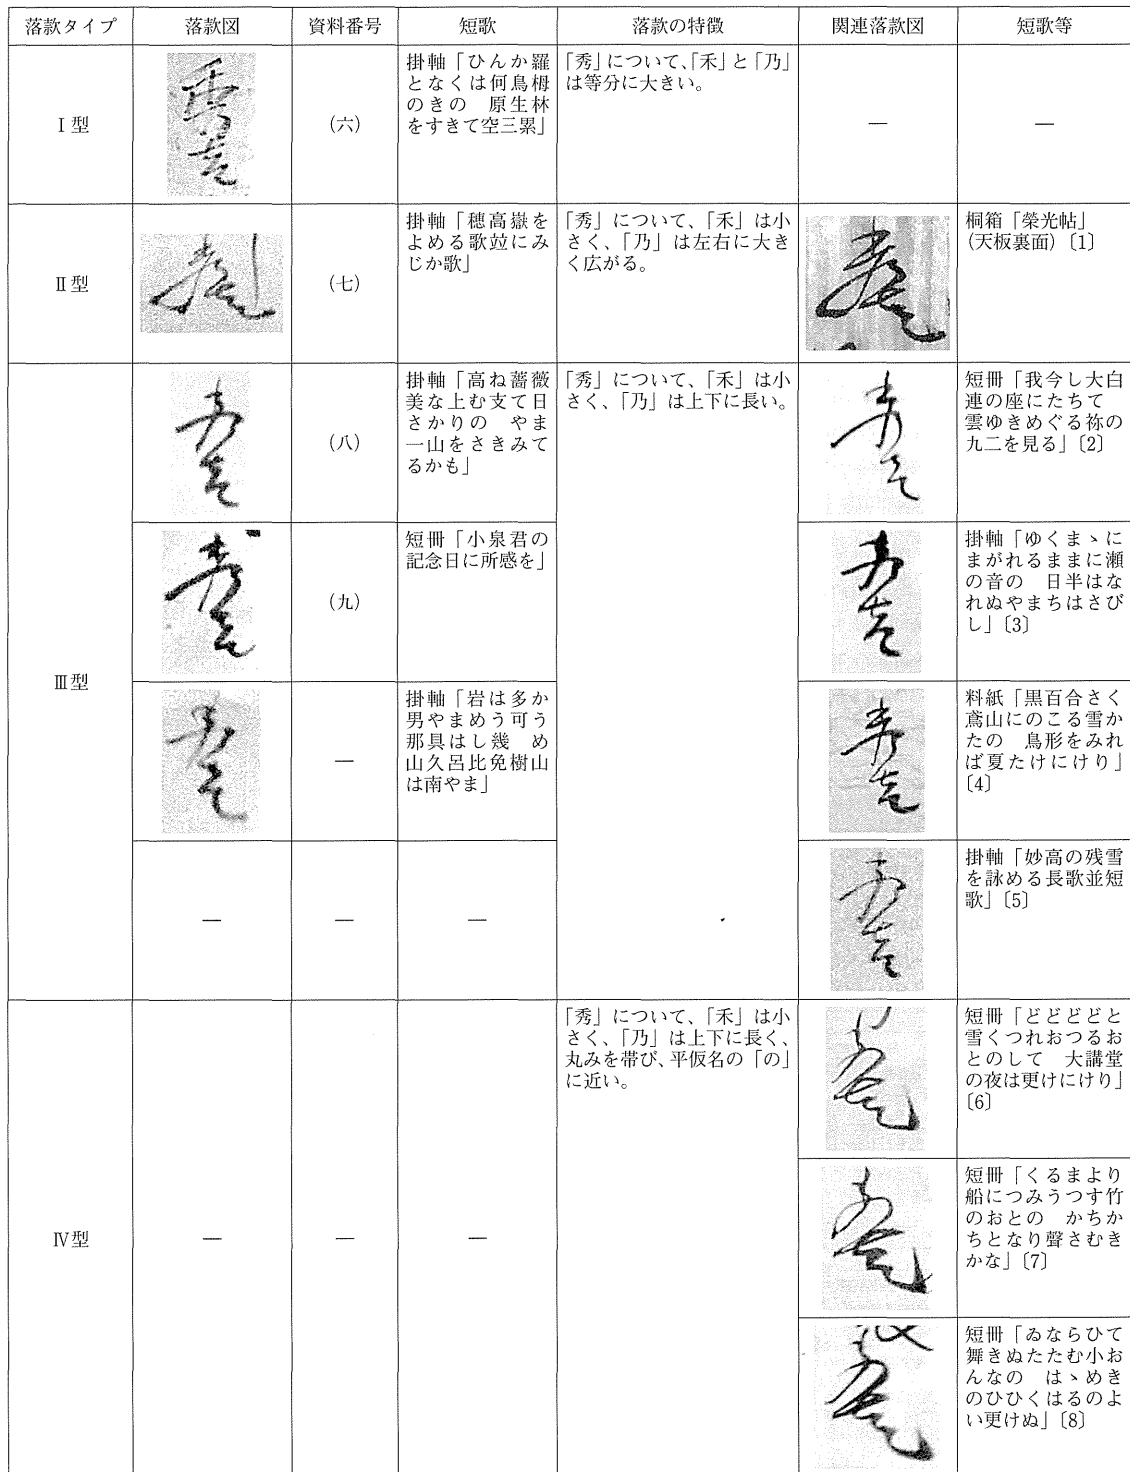 落款タイプ 落款図 資料番号 短歌 落款の特徴 関連落款図 短歌等
Ⅰ型
(六)
掛軸「ひんか羅
となくは何鳥栂
のきの　原生林
をすきて空三累」
「秀」について、「禾」と「乃」
は等分に大きい。
―
―
Ⅱ型
(七)
掛軸「穂高嶽を
よめる歌竝にみ
じか歌」
「秀」について、「禾」は小
さく、「乃」は左右に大き
く広がる。
桐箱「榮光帖」
(天板裏面)〔1〕
Ⅲ型
(八)
掛軸「高ね薔薇
美な上む支て日
さかりの　やま
一山をさきみて
るかも」
「秀」について、「禾」は小
さく、「乃」は上下に長い。
短冊「我今し大白
連の座にたちて
雲ゆきめぐる祢の
九二を見る」〔2〕
(九)
短冊「小泉君の
記念日に所感を」
掛軸「ゆくまゝに
まがれるままに瀬
の音の　日半はな
れぬやまちはさび
し」〔3〕
―
掛軸「岩は多か
男やまめう可う
那具はし幾　め
山久呂比免樹山
は南やま」
料紙「黒百合さく
鳶山にのこる雪か
たの　鳥形をみれ
ば夏たけにけり」
〔4〕
―
―
―
掛軸「妙高の残雪
を詠める長歌並短
歌」〔5〕
Ⅳ型
―
―
―
「秀」について、「禾」は小
さく、「乃」は上下に長く、
丸みを帯び、平仮名の「の」
に近い。
短冊「どどどどと
雪くつれおつるお
とのして　大講堂
の夜は更けにけり」
〔6〕
短冊「くるまより
船につみうつす竹
のおとの　かちか
ちとなり聲さむき
かな」〔7〕
短冊「ゐならひて
舞きぬたたむ小お
んなの　はゝめき
のひひくはるのよ
い更けぬ」〔8〕